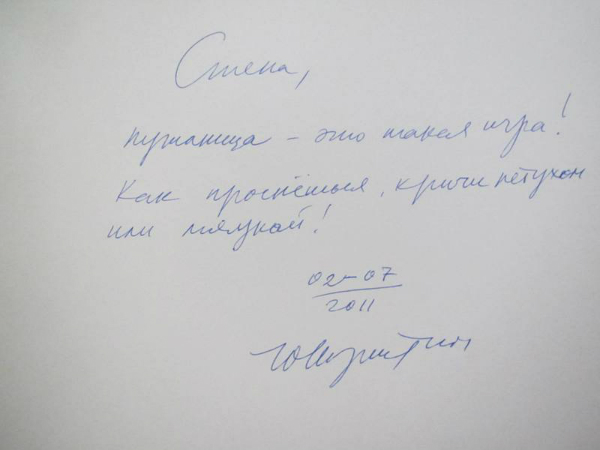 Степа,
путаница – это такая игра!
Как проснёшься, кричи петухом
или мяукай!
02–07
2011